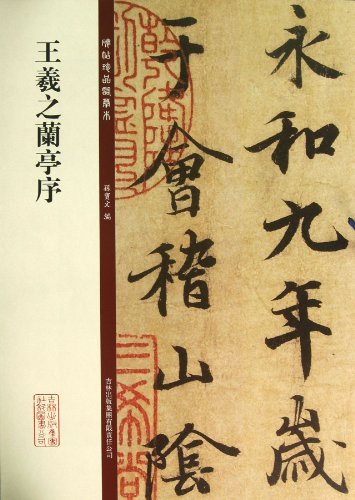 王羲之蘭亭序
碑帖珍品臨摹本
孫寶文 編
吉林出版集團有限責任公司
永和九年歲
于會稽山陰